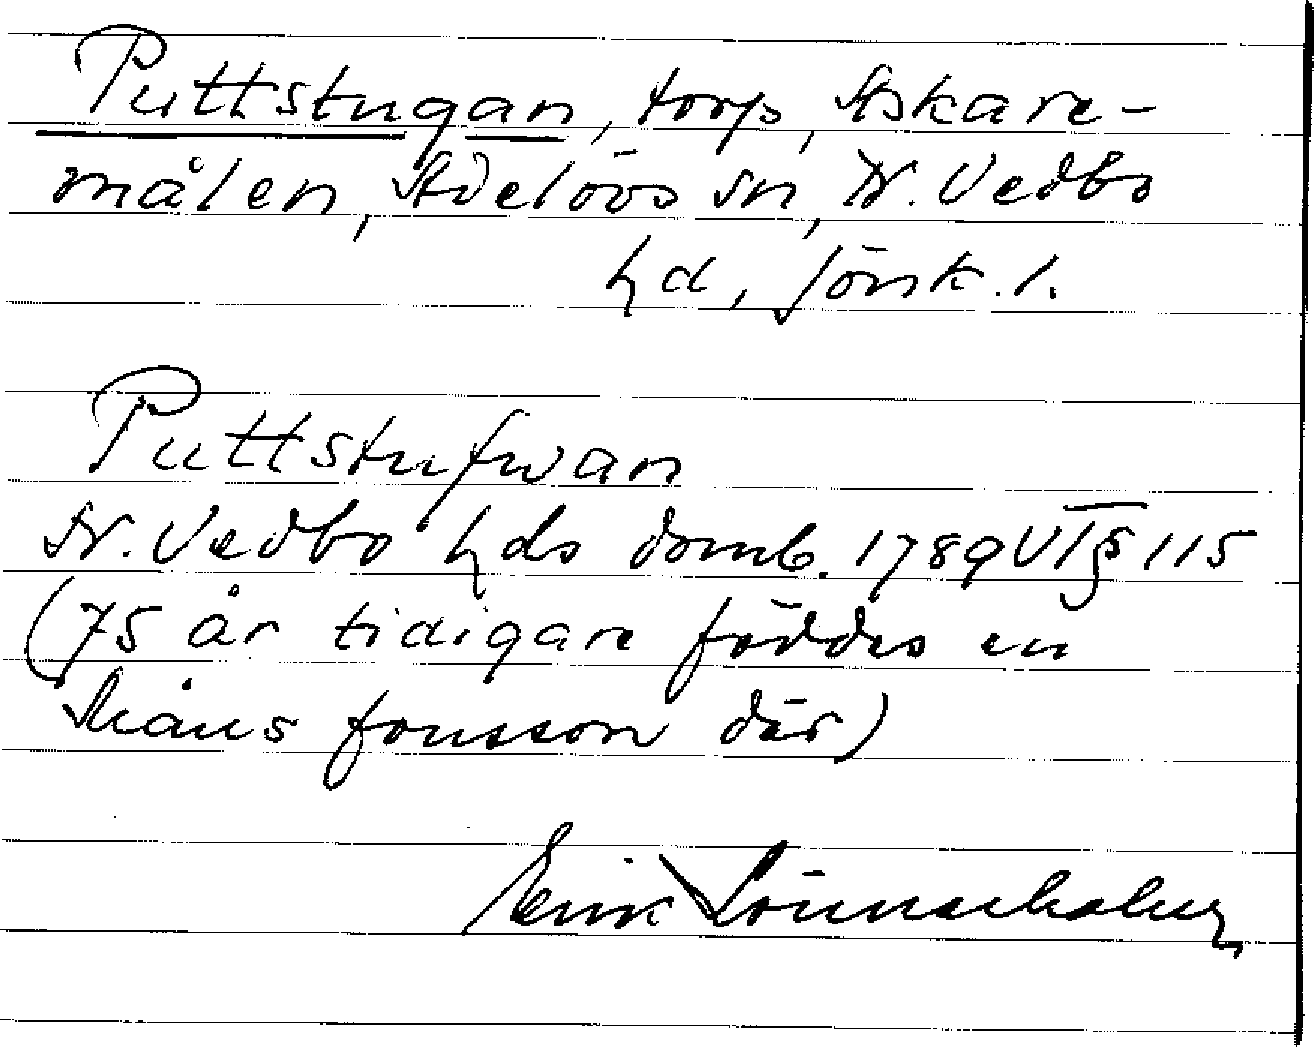 Puttstugan, torp, Askare-
målen, Adelövs sn, N. Vedbo
hd, Jönk. l.
Puttstufwan
N. Vedbo hds domb. 1789 VI § 115
(75 år tidigare föddes en
Måns Jonsson där)
Erik Lönnerholm